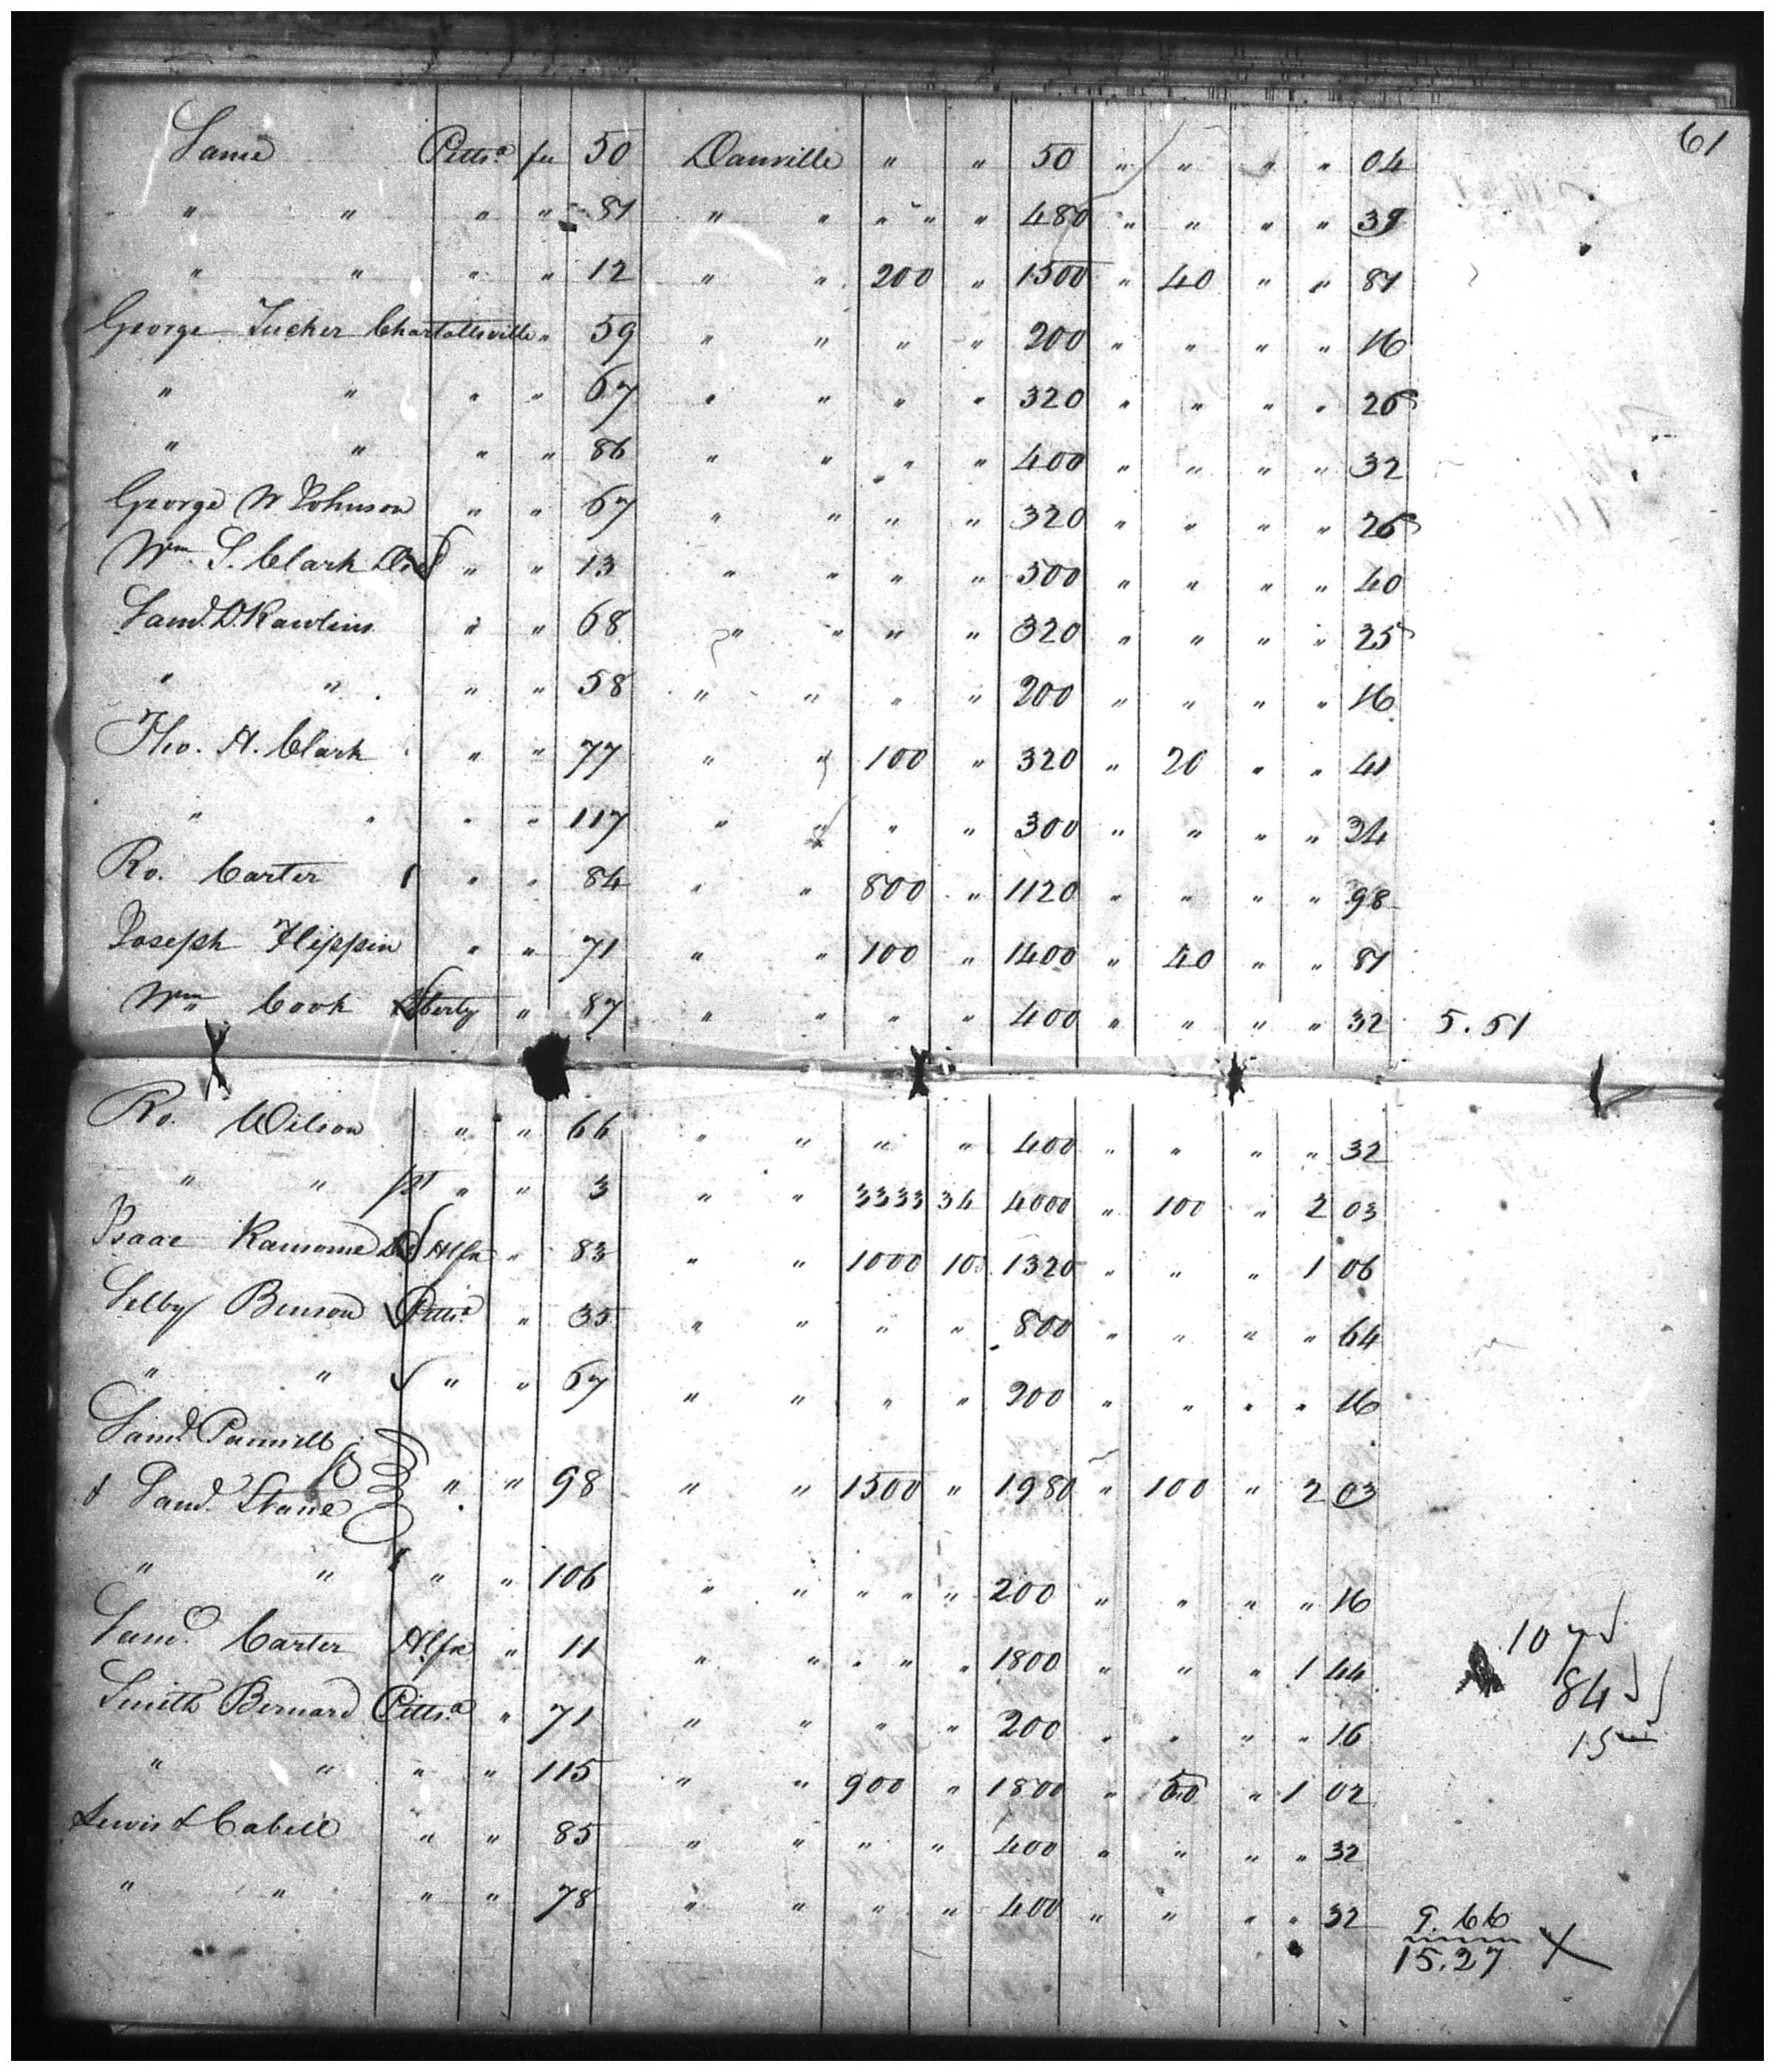 61
Same Pittsa fee 50 Danville " " 50 " " " " 04
" " " " 81 " " " " " 480 " " " " 39
" " " " 12 " " 200 " 1500 " 40 " " 81
George Tucker Charlottsville " 59 " " " " 200 " " " " 16
" " " " 67 " " " " 320 " " " " 26
" " " " 86 " " " " 400 " " " " 32
George W Johnson " " 67 " " " " 320 " " " " 26
Wm. S. Clark " " 13 " " " " 500 " " " " 40
Saml. D. Rawlins " " 68 " " " " 320 " " " " 25
" " " " 58 " " " " 200 " " " " 16
Tho. H. Clark " " 77 " " 100 " 320 " 20 " " 41
" " " " 117 " " " " 300 " " " " 24
Ro. Carter " " 84 " " 800 " 1120 " " " " 98
Joseph Flippin " " 71 " " 100 " 1400 " 40 " " 81
Wm Cook Liberty " 87 " " " " 400 " " " " 32 5.51
Ro. Wilson " " 66 " " " " 400 " " " " 32
" " " " 3 " " 3333 34 4000 " 100 " 2 03
Isaac Ransome Hlfx " 83 " " 1000 10 1320 " " " 1 06
Selby Benson Pittsa " 35 " " " " 800 " " " " 64
" " " " 67 " " " " 200 " " " " 16
Saml. Pannill
& Saml. Stone " " 98 " " 1500 " 1980 " 100 " 2 03
" " " " 106 " " " " " 200 " " " " 16
Saml. Carter Hlfx " 11 " " " " " 1800 " " " 1 44
Smith Bernard Pittsa " 71 " " " " 200 " " " " 16
" " " " 115 " " 900 " 1800 " 50 " 1 02
Lewis & Cabell " " 85 " " " " 400 " " " " 32
" " " " 78 " " " " 400 " " " " 32 9.66
15.27 X
107
84
15